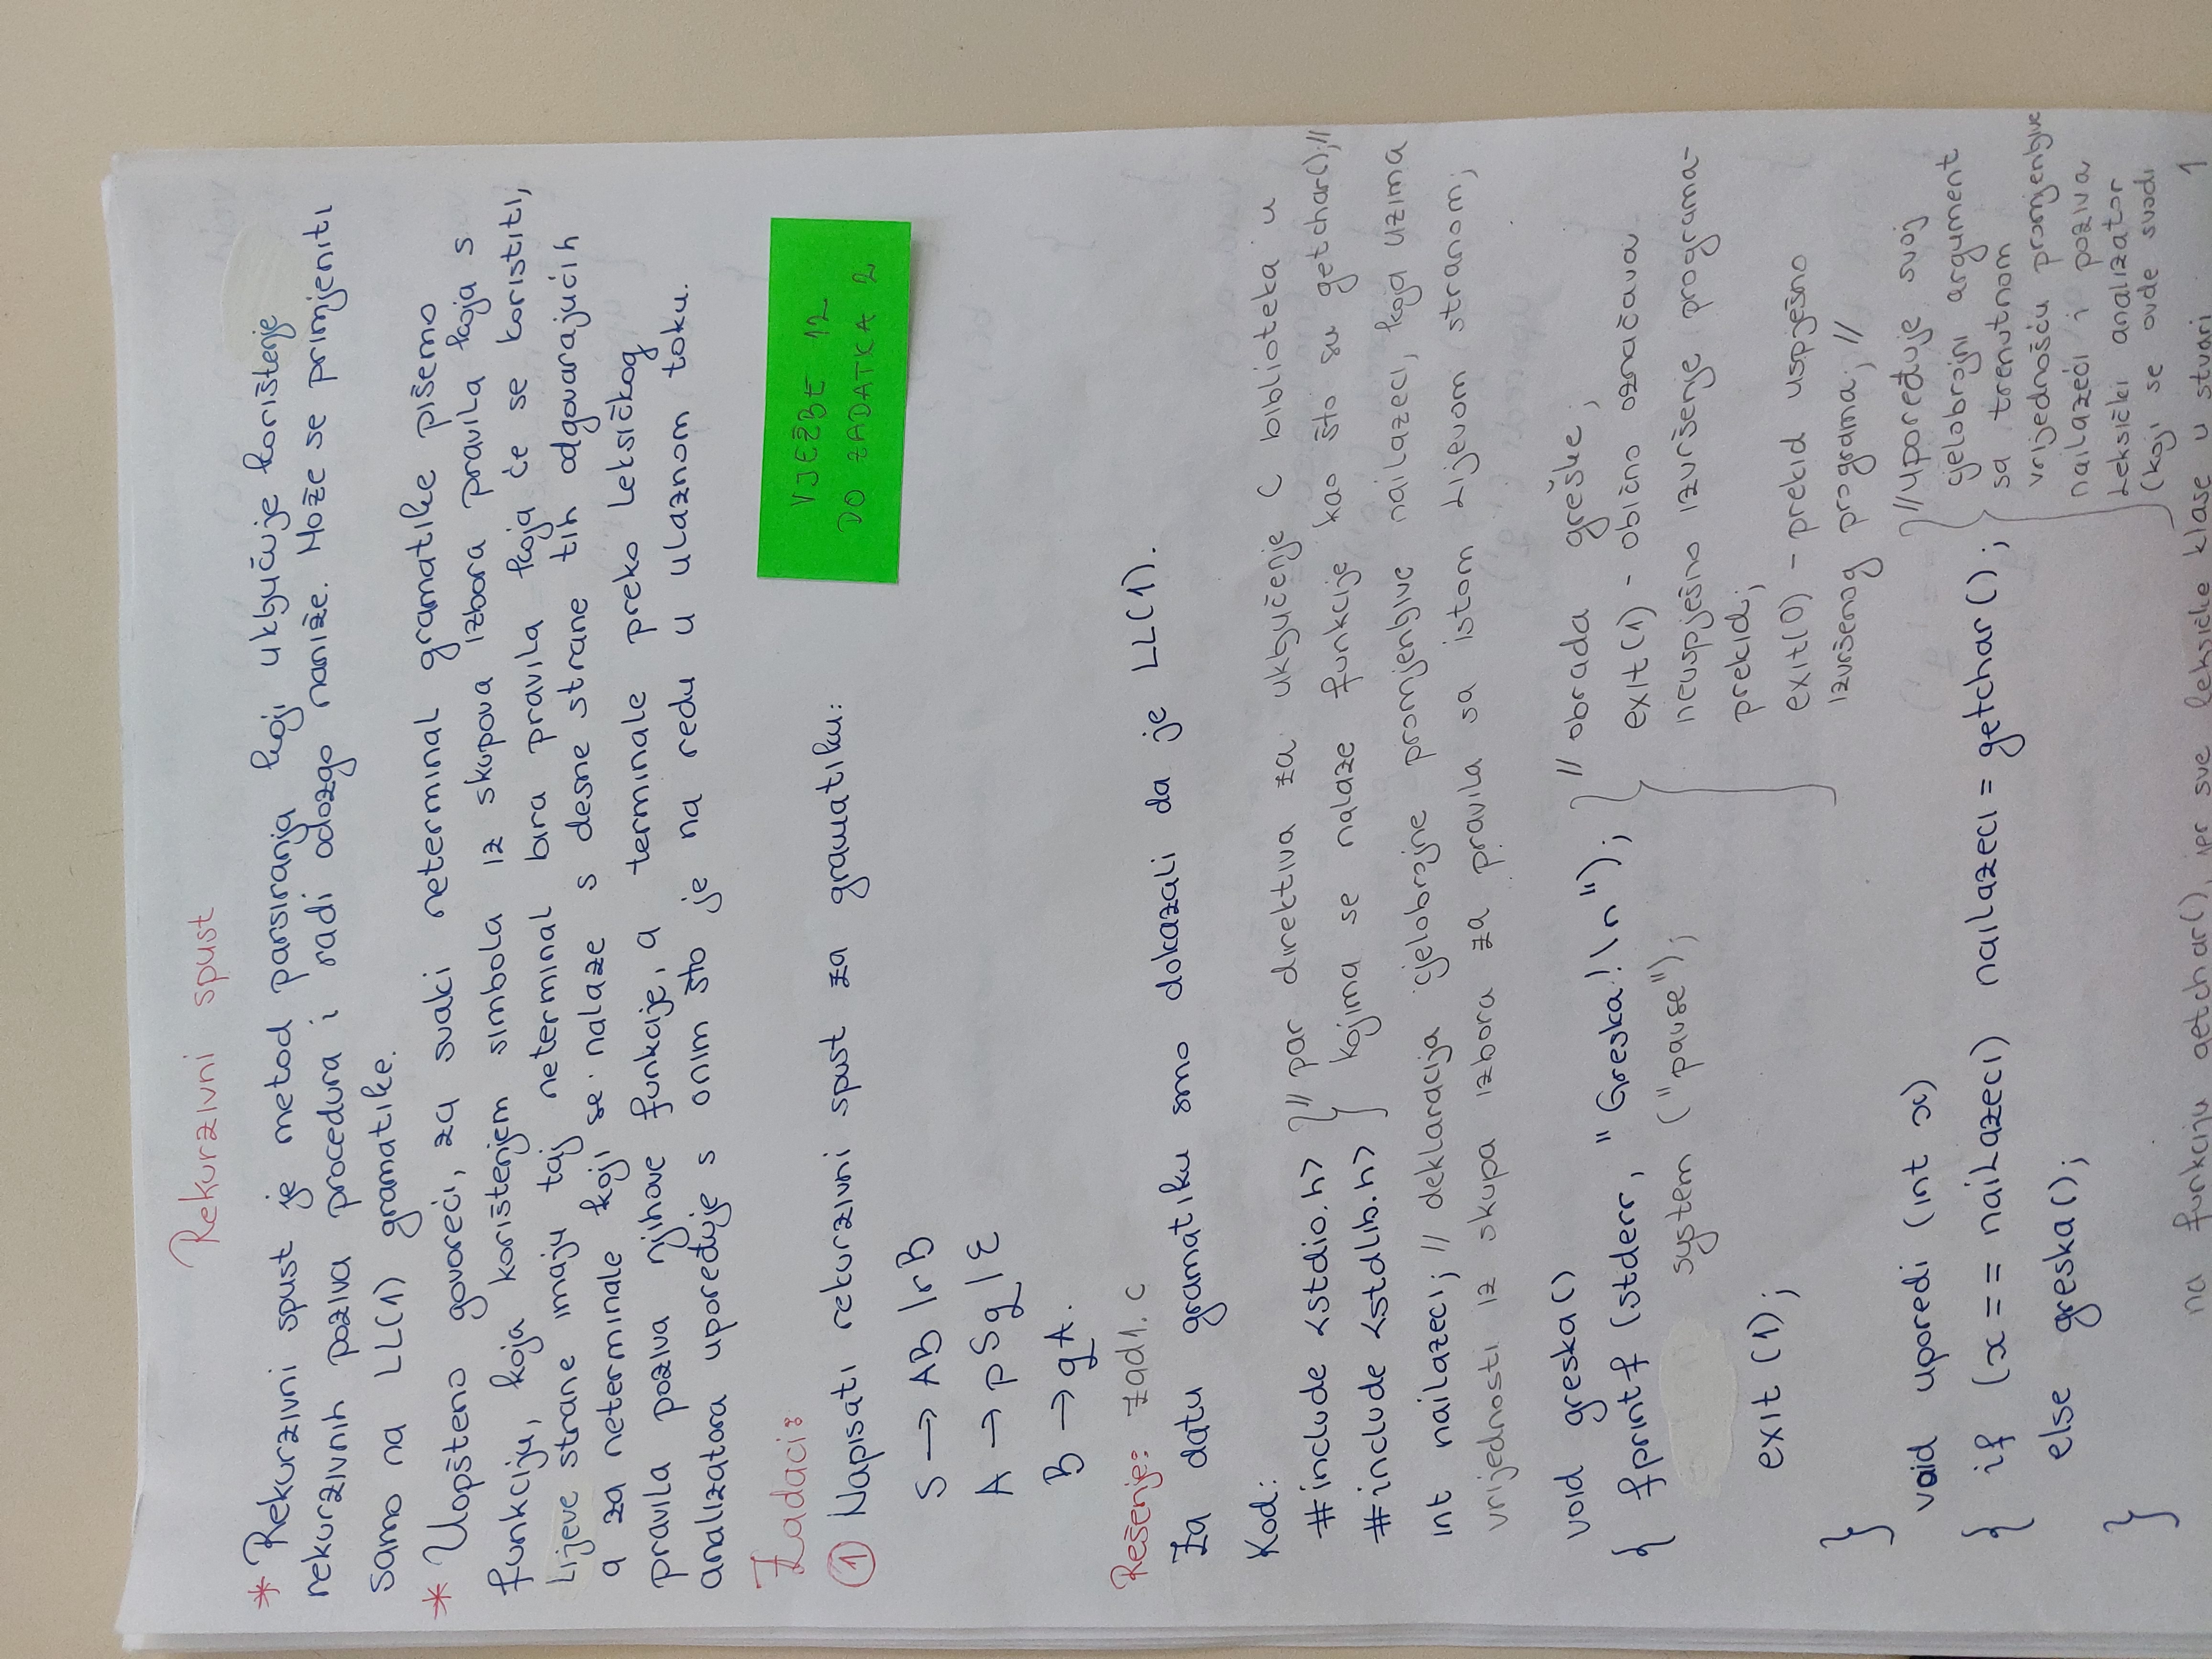 Rekurzivni spust
* Rekurzivni spust je metod parsiranja koji uključuje korištenje
rekurzivnih poziva procedura i radi odozgo naniže. Može se primjeniti
samo na LL(1) gramatike.
* Uopšteno govoreći, za svaki neterminal gramatike pišemo
funkciju, koja korištenjem simbola iz skupova izbora pravila koja s
lijeve strane imaju taj neterminal bira pravila koja će se koristiti,
a za neterminale koji se nalaze s desne strane tih odgovarajućih
pravila poziva njihove funkcije, a terminale preko leksičkog
analizatora upoređuje s onim što je na redu u ulaznom toku.
Zadaci:
VJEŽBE 12
DO ZADATKA 2
1 Napisati rekurzivni spust za gramatiku:
S → AB | rB
A → pSq | ε
B → qA.
Rešenje: zad1.c
Za datu gramatiku smo dokazali da je LL(1).
Kod:
#include <stdio.h> } // par direktiva za uključenje C biblioteka u
#include <stdlib.h> } kojima se nalaze funkcije kao što su getchar();//
int nailazeci; // deklaracija cjelobrojne promjenljive nailazeci, koja uzima
vrijednosti iz skupa izbora za pravila sa istom lijevom stranom;
void greska() // obrada greške;
{ fprintf (stderr, "Greska!\n"); exit(1) - obično označava
system ("pause"); neuspješno izvršenje programa-
prekid;
exit (1); exit(0) - prekid uspješno
} izvršenog programa; //
void uporedi (int x) // upoređuje svoj
cjelobrojni argument
{ if (x == nailazeci) nailazeci = getchar(); sa trenutnom
vrijednošću promjenljive
else greska(); nailazeći i poziva
leksički analizator
} (koji se ovde svodi
na funkciju getchar(), jer sve leksičke klase u stvari 1